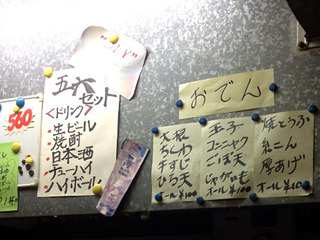 560
五六
セット
<ドリンク>
・生ビール
・焼酎
・日本酒
・チューハイ
・ハイボール
おでん
大根
ちくわ
牛すじ
ひら天
オール¥100
玉子
コンニャク
ごぼ天
じゃがいも
オール¥100
焼とうふ
糸こん
厚あげ
オール¥100